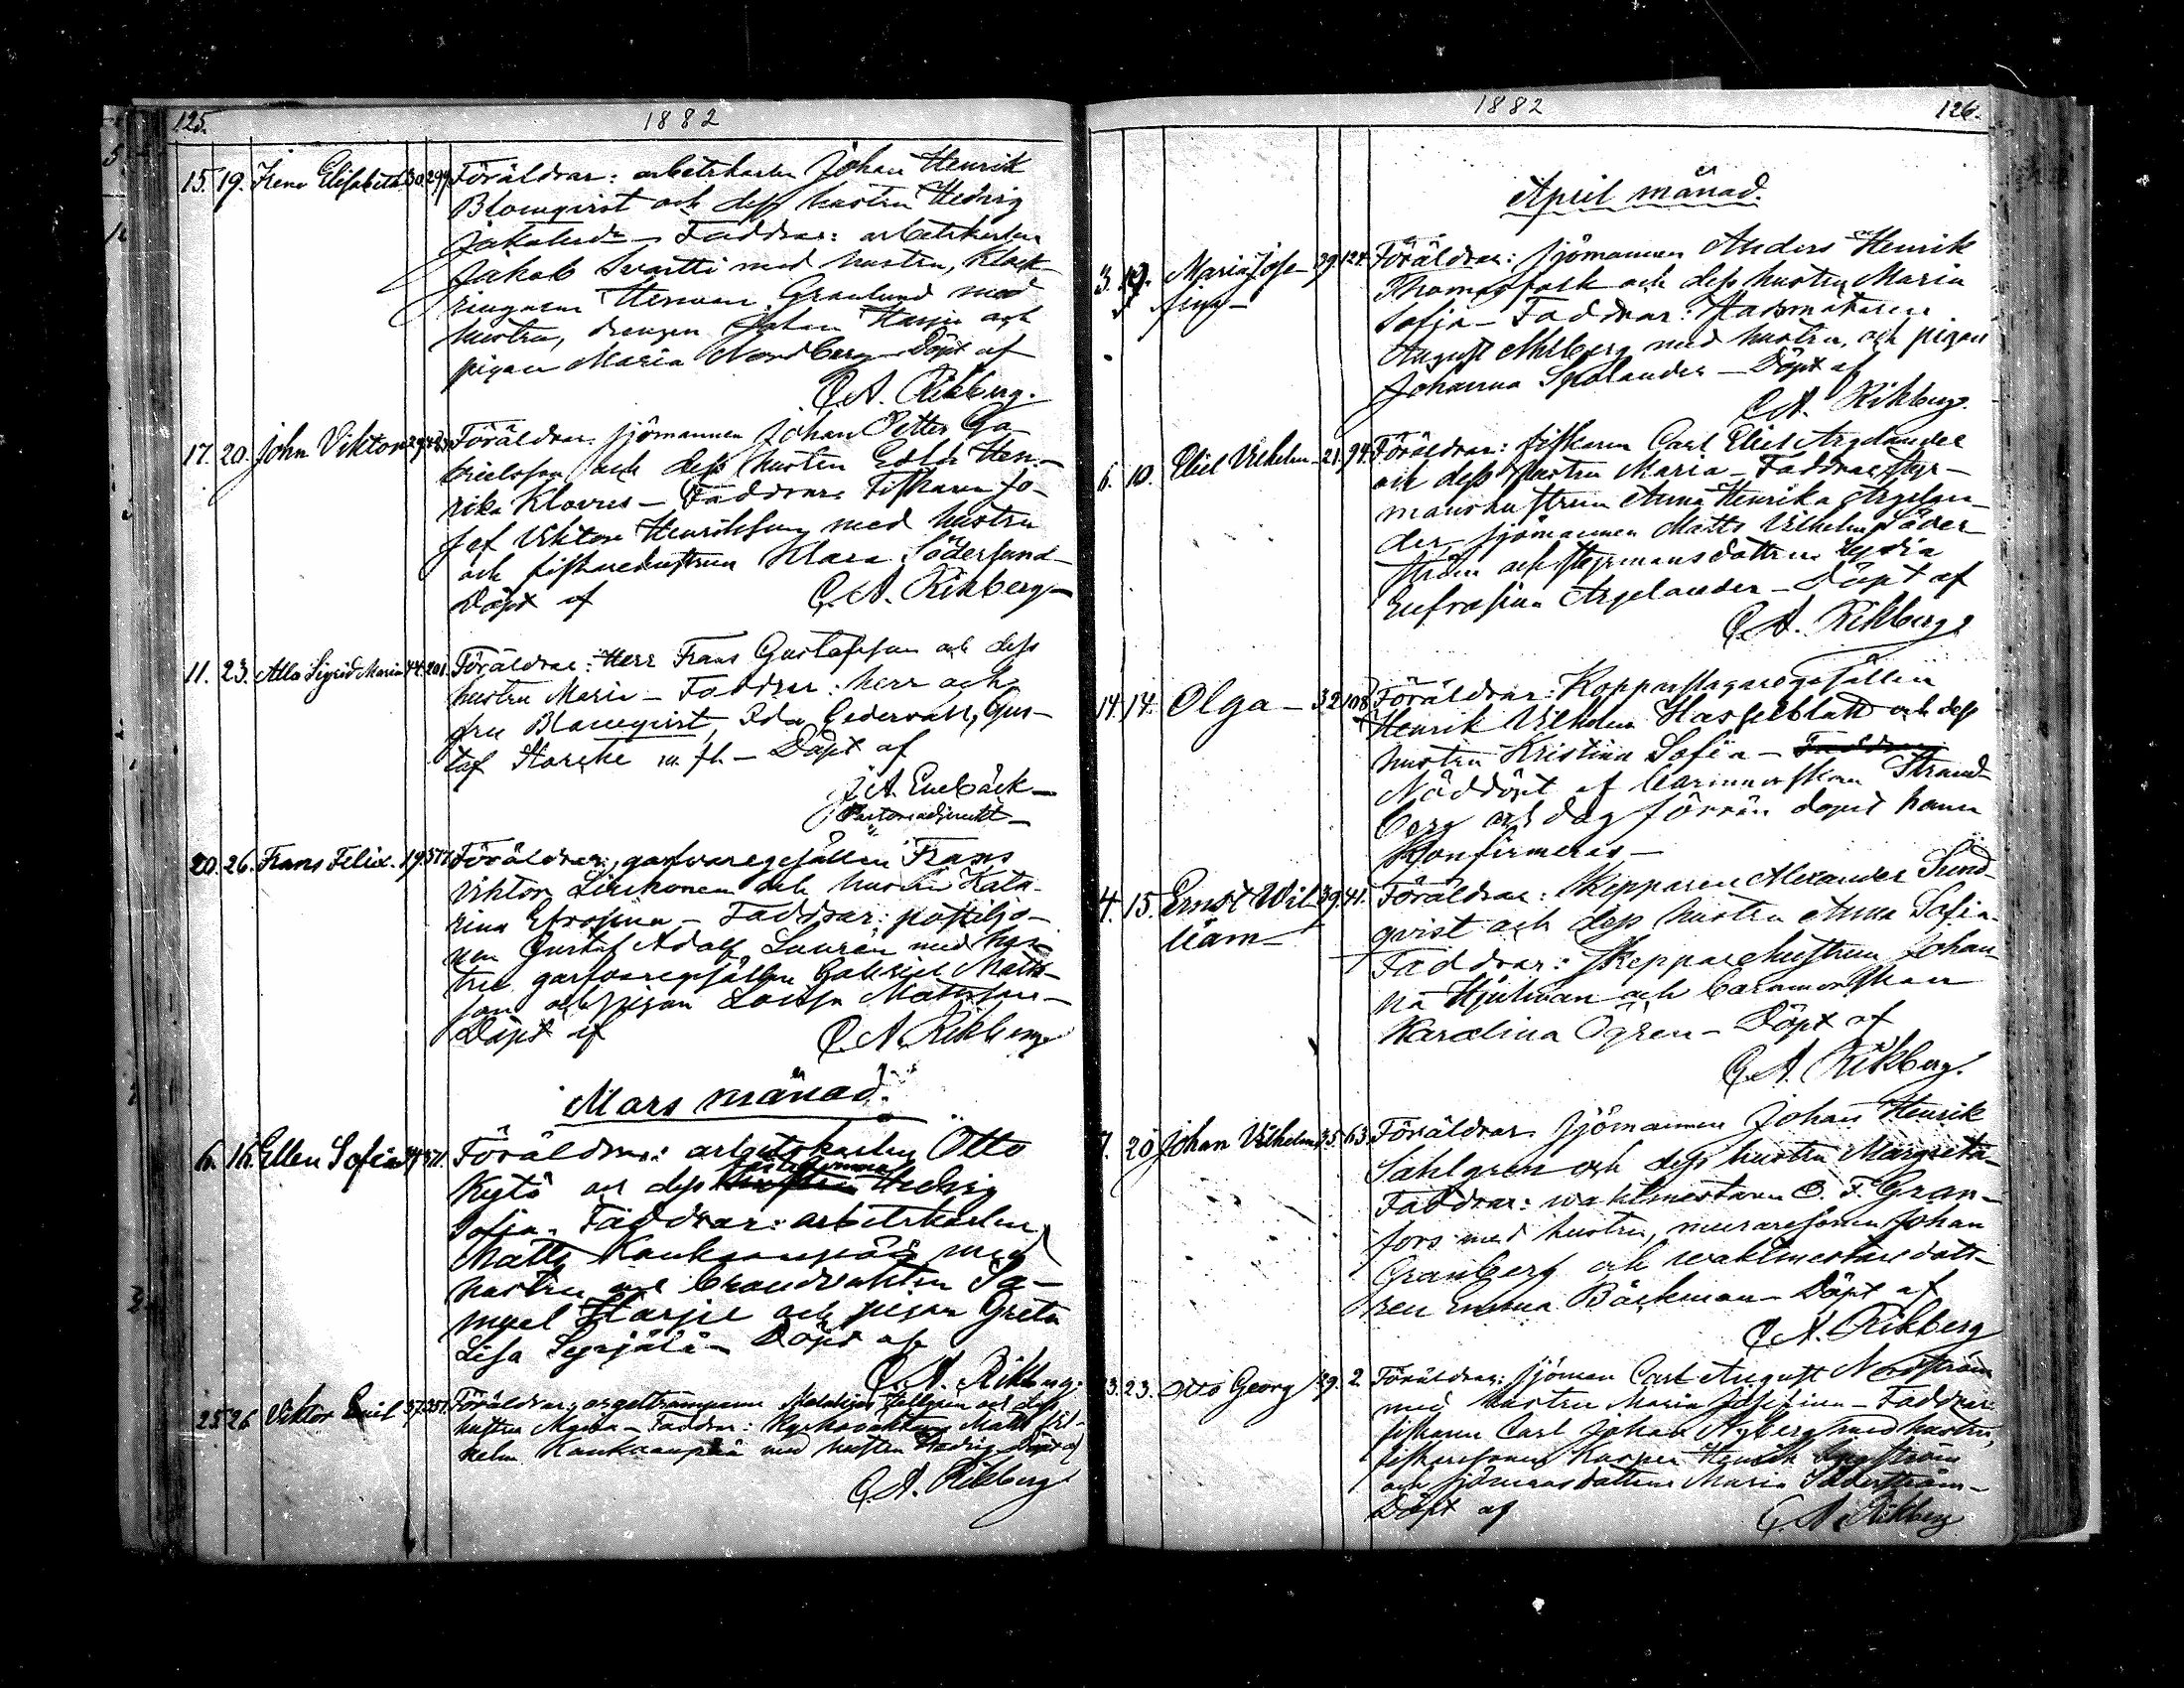 125.
1882
15. 19. Irene Elisabeta 30 299 Föräldrar: arbetskarlen Johan Henrik
Blomqvist och dess hustru Hedvig
Jakolinda – Faddrar: arbetskarlen
Jakob Svartti med hustru, klock-
ringaren Herman Granlund med
hustru, drengen Johan Harju och
pigan Maria Nordberg – Döpt af
C. A. Rikberg.
17. 20. John Viktor Föräldrar. sjömannen Johan Petter Ga-
brielsson och dess hustru Edla Hen-
rika Klovus – Faddrar: Fiskaren Jo-
sef Viktor Henriksson med hustru
och fiskarehustrun Klara Söderlund
Döpt af C. A. Rikberg –
11. 23. Sigrid Maria 44. 201. Föräldrar: Herr Frans Gustafsson och dess
hustru Maria – Faddrar: herr och
fru Blomqvist, Ida Cedervall, Gus-
taf m. fl. – Döpt af
J. A. Enebäck –
Pastorsadjunkt –
20. 26. Frans Felix. 19. Föräldrar: garfvaregesällen Frans
Viktor och hustru Kata-
rina Efrosina – Faddrar: postiljo-
nen Gustaf Adolf Laurén med hus-
tru garfvaregesällen Gabriel Matts-
son och pigan Lovisa Mattsson –
Döpt af C. A. Rikberg
Mars månad.
6. 16. Ellen Sofia Föräldrar: arbetskarlen Otto
Kytö och dess Hedvig
Sofia. Faddrar: arbetskarlen
Matts Kankaanpää med
hustru och brandvakten Sa-
muel Harju och pigan Greta
Lisa – Döpt af
C. A. Rikberg.
25. 26. Viktor Emil 37. 257. Föräldrar: orgeltramparen Hallgren och dess
hustru – Faddrar: Kyrkovakten Matts Vil-
helm Kankaanpää med hustru Hedvig – Döpt af
C. A. Rikberg
1882
126.
April månad.
3. 9. Maria Jose- 39. 124. Föräldrar: sjömannen Anders Henrik
fina – Thomasfolk och dess hustru Maria
Sofia – Faddrar:
August Ahlberg med hustru, och pigan
Johanna – Döpt af
C. A. Rikberg.
6. 10. Eliel Vilhelm – 21. 94. Föräldrar: fiskaren Carl Eliel Argelander
och dess hustru Maria – Faddrar: styr-
manshustrun Anna Henrika Argelan-
der sjömannen Matts Vilhelm Söder-
ström och styrmansdottren Lydia
Eufrosina Argelander – Döpt af
C. A. Rikberg.
14. 14. Olga – 32 108 Föräldrar: Kopparslagaregesällen
Henrik Vilhelm Hasselblatt och dess
hustru Kristina Sofia – Faddrar
Nöddöpt af barnmorskan Strand-
berg och dog förrän dopet hann
konfirmeras –
4. 15. Ernst Wil- 39. 41. Föräldrar: Skepparen Alexander Sund-
liam – qvist och dess hustru Anna Sofia.
Faddrar: Skepparehustrun Johan-
na Hjulman och barnmorskan
Karolina Ögren – Döpt af
C. A. Rikberg.
7. 20 Johan Vilhelm 35. 63. Föräldrar. sjömannen Johan Henrik
Sahlgren och dess hustru Margreta –
Faddrar: waktmestaren O. F. Gran-
fors med hustru, muraresonen Johan
Granberg och waktmestaredott-
ren Emma Bäckman – Döpt af
C. A. Rikberg
23. Otto Georg 2. Föräldrar: sjöman Carl August Nordström
med hustru Maria Josefina – Faddrar:
fiskaren Carl Johan Nyberg med hustru,
fiskaresonen Kasper Henrik
och sjömansdottren Maria Söderström –
Döpt af C. A. Rikberg